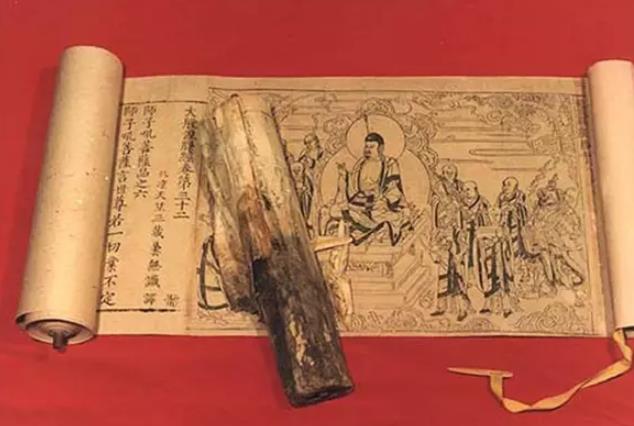 大般涅槃經卷第三十二
北凉天竺三藏曇無讖譯
師子吼菩薩品之六
師子吼菩薩言世尊若一切業不定